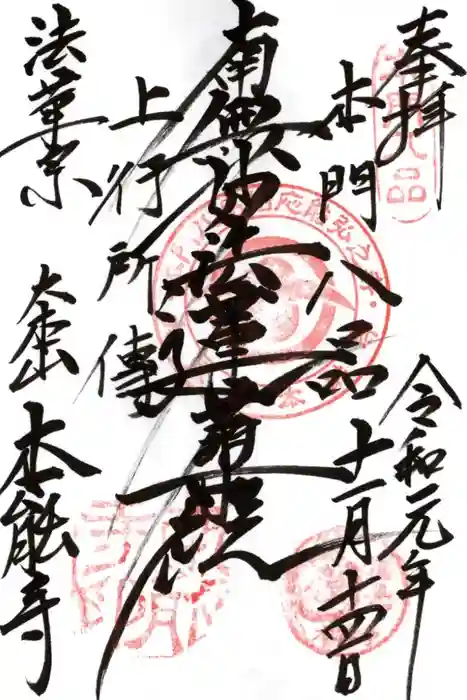 奉拝
令和元年
十一月十四日
本門八品
南無妙法蓮華経
上行所傳
法華宗
大本山
本能寺